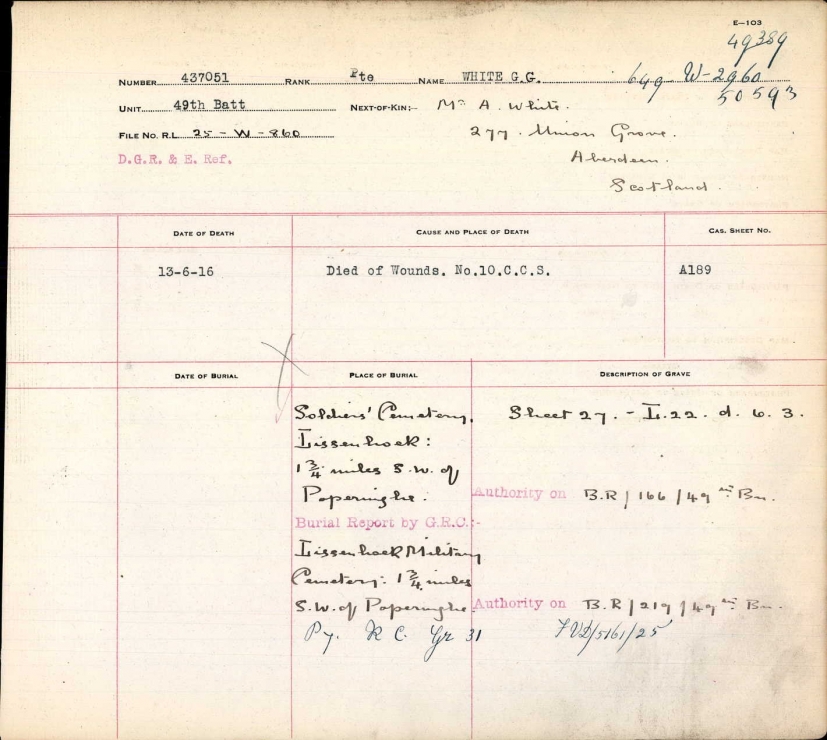 E—103
49389
NUMBER 437051 RANK Pte NAME WHITE G.G. 649 W-2960
50593
UNIT 49th Batt NEXT-OF-KIN:— Mr A. White.
FILE NO. R.L. 25 - W - 860 277. Union Grove.
D.G.R. & E. Ref. Aberdeen.
Scotland.
DATE OF DEATH CAUSE AND PLACE OF DEATH CAS. SHEET NO.
13-6-16 Died of Wounds. No.10.C.C.S. A189
DATE OF BURIAL PLACE OF BURIAL DESCRIPTION OF GRAVE
Soldiers' Cemetery, Sheet 27. - L. 22. d. 6. 3.
Lissenhoek:
1 3/4 miles S.W. of
Poperinghe. Authority on B.R/166/49th Bn.
Burial Report by G.R.C.:-
Lissenhoek Military
Cemetery: 1 3/4 miles
S.W. of Poperinghe. Authority on B.R/219/49th Bn.
R C. Gr 31